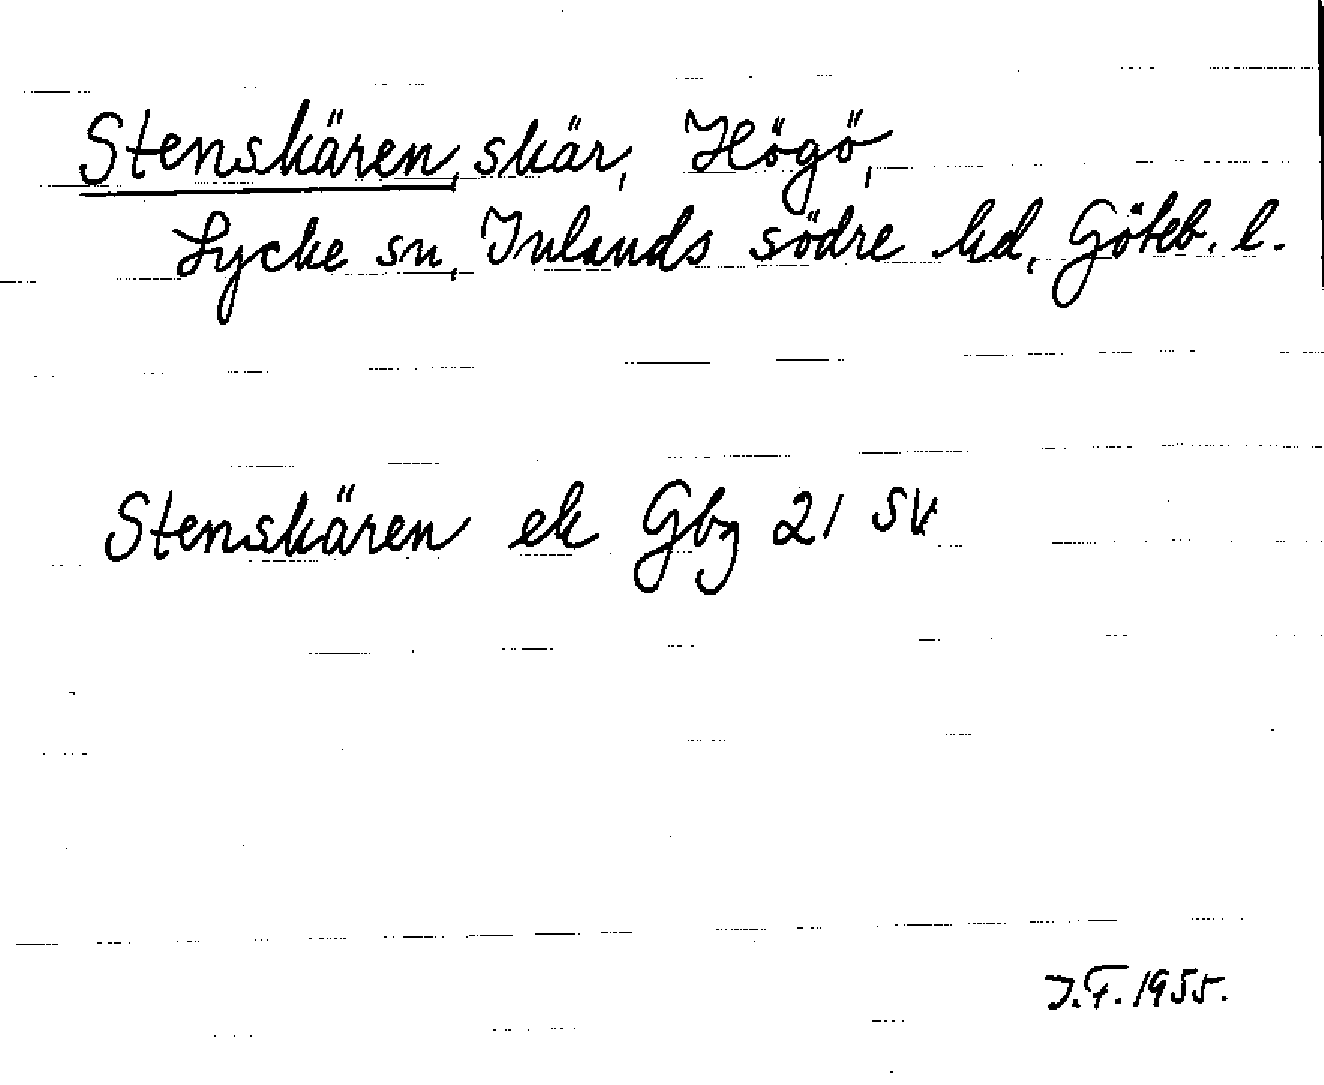 Stenskären, skär, Högö,
Lycke sn, Inlands södre hd, Göteb. l.
Stenskären ek Gbg 21 SV
J.F. 1955.